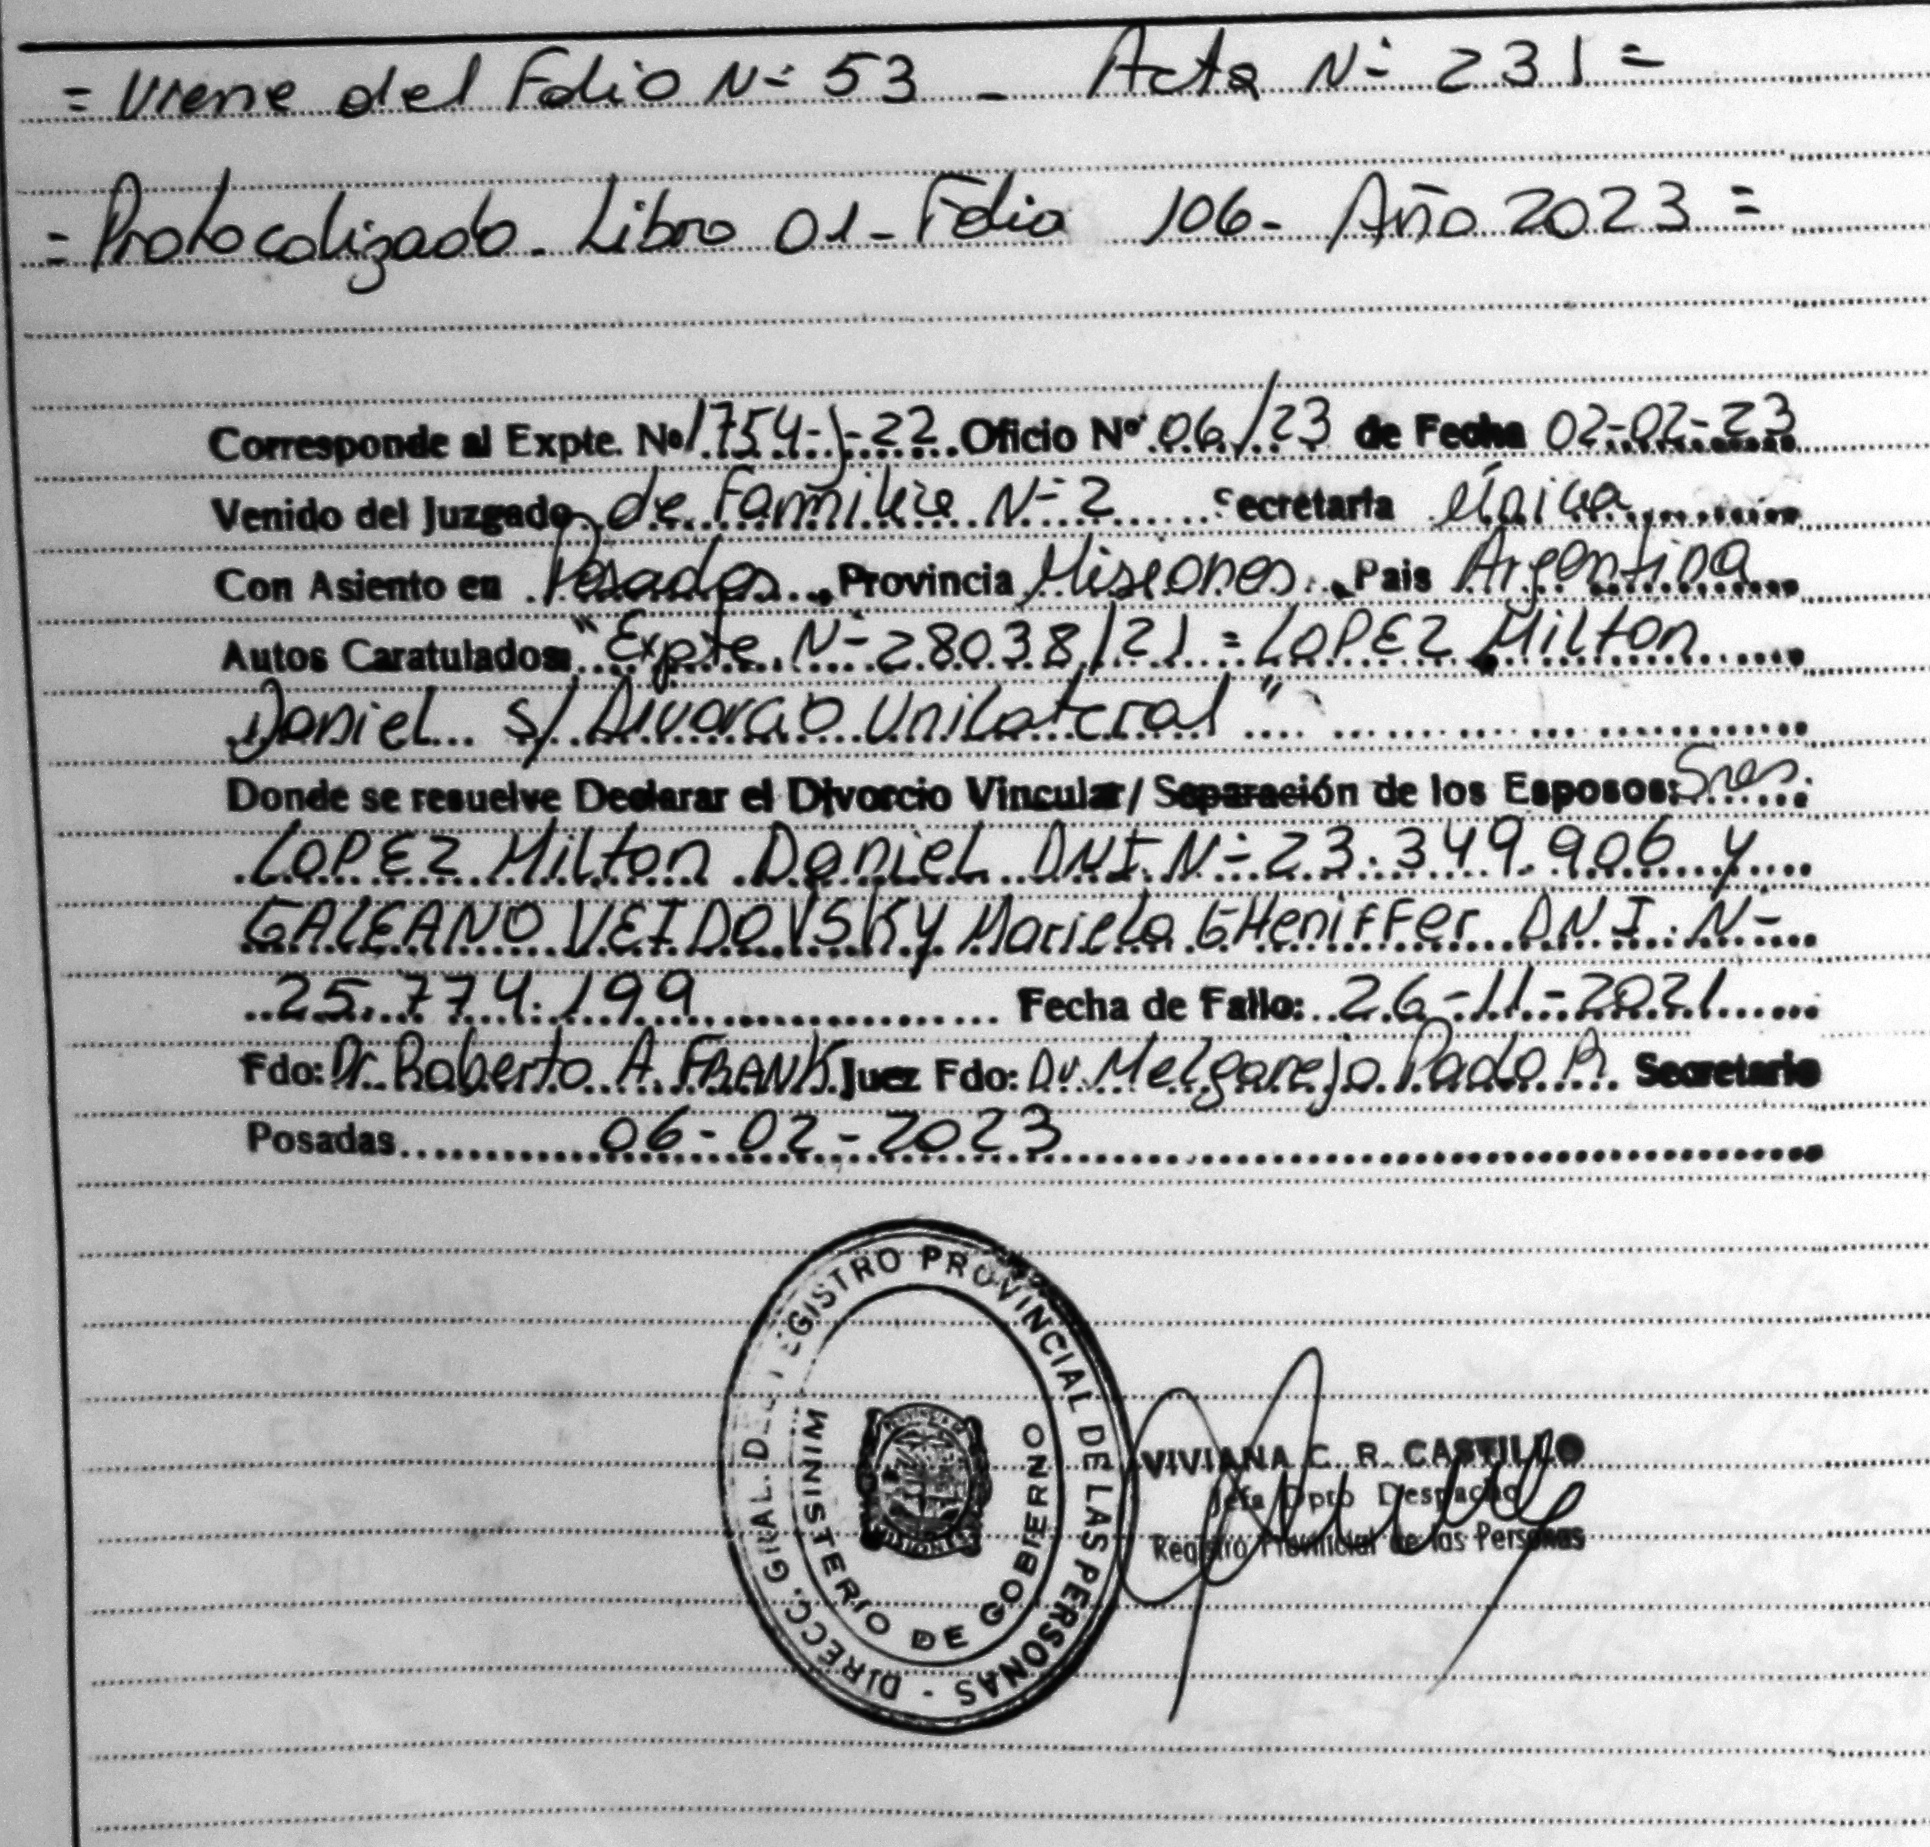 = Viene del Folio Nº 53 - Acta Nº 231 =
= Protocolizado - Libro 01 - Folio 106 - Año 2023 =
Corresponde al Expte. Nº 1754-J-22 Oficio Nº 06/23 de Fecha 02-02-23
Venido del Juzgado de Familia Nº 2 Secretaria única
Con Asiento en Posadas Provincia Misiones Pais Argentina
Autos Caratulados: "Expte Nº 28038/21 = LOPEZ Milton
Daniel s/ Divorcio Unilateral"
Donde se resuelve Declarar el Divorcio Vincular/ Separación de los Esposos: Sres.
LOPEZ Milton Daniel DNI Nº 23.349.906 y
GALEANO VEIDOVSKY Mariela GHeniFFer DNI. Nº
25.774.199 Fecha de Fallo: 26-11-2021
Fdo: Dr. Roberto A. FRANK Juez Fdo: Dr. Melgarejo R. Secretario
Posadas 06-02-2023
DIRECC. GRAL. DEL REGISTRO PROVINCIAL DE LAS PERSONAS -
MINISTERIO DE GOBIERNO
PROVINCIA DE
MISIONES
VIVIANA C. R. CASTILLO
Jefa Dpto Despacho
Registro Provincial de las Personas